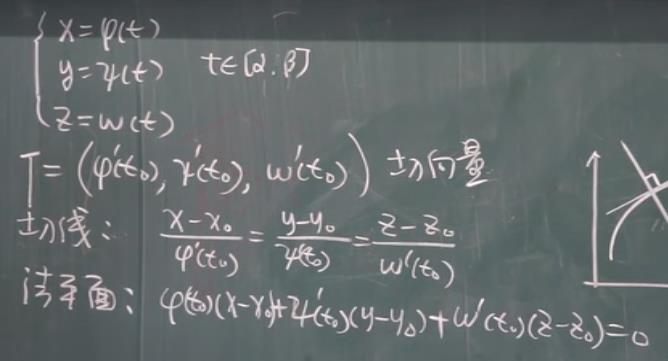 x=φ(t)
y=ψ(t) t∈[α.β]
z=w(t)
T=(φ'(t₀), ψ'(t₀), w'(t₀)) 切向量
切线: (x-x₀)/φ'(t₀) = (y-y₀)/ψ'(t₀) = (z-z₀)/w'(t₀)
法平面: φ'(t₀)(x-x₀)+ψ'(t₀)(y-y₀)+w'(t₀)(z-z₀)=0